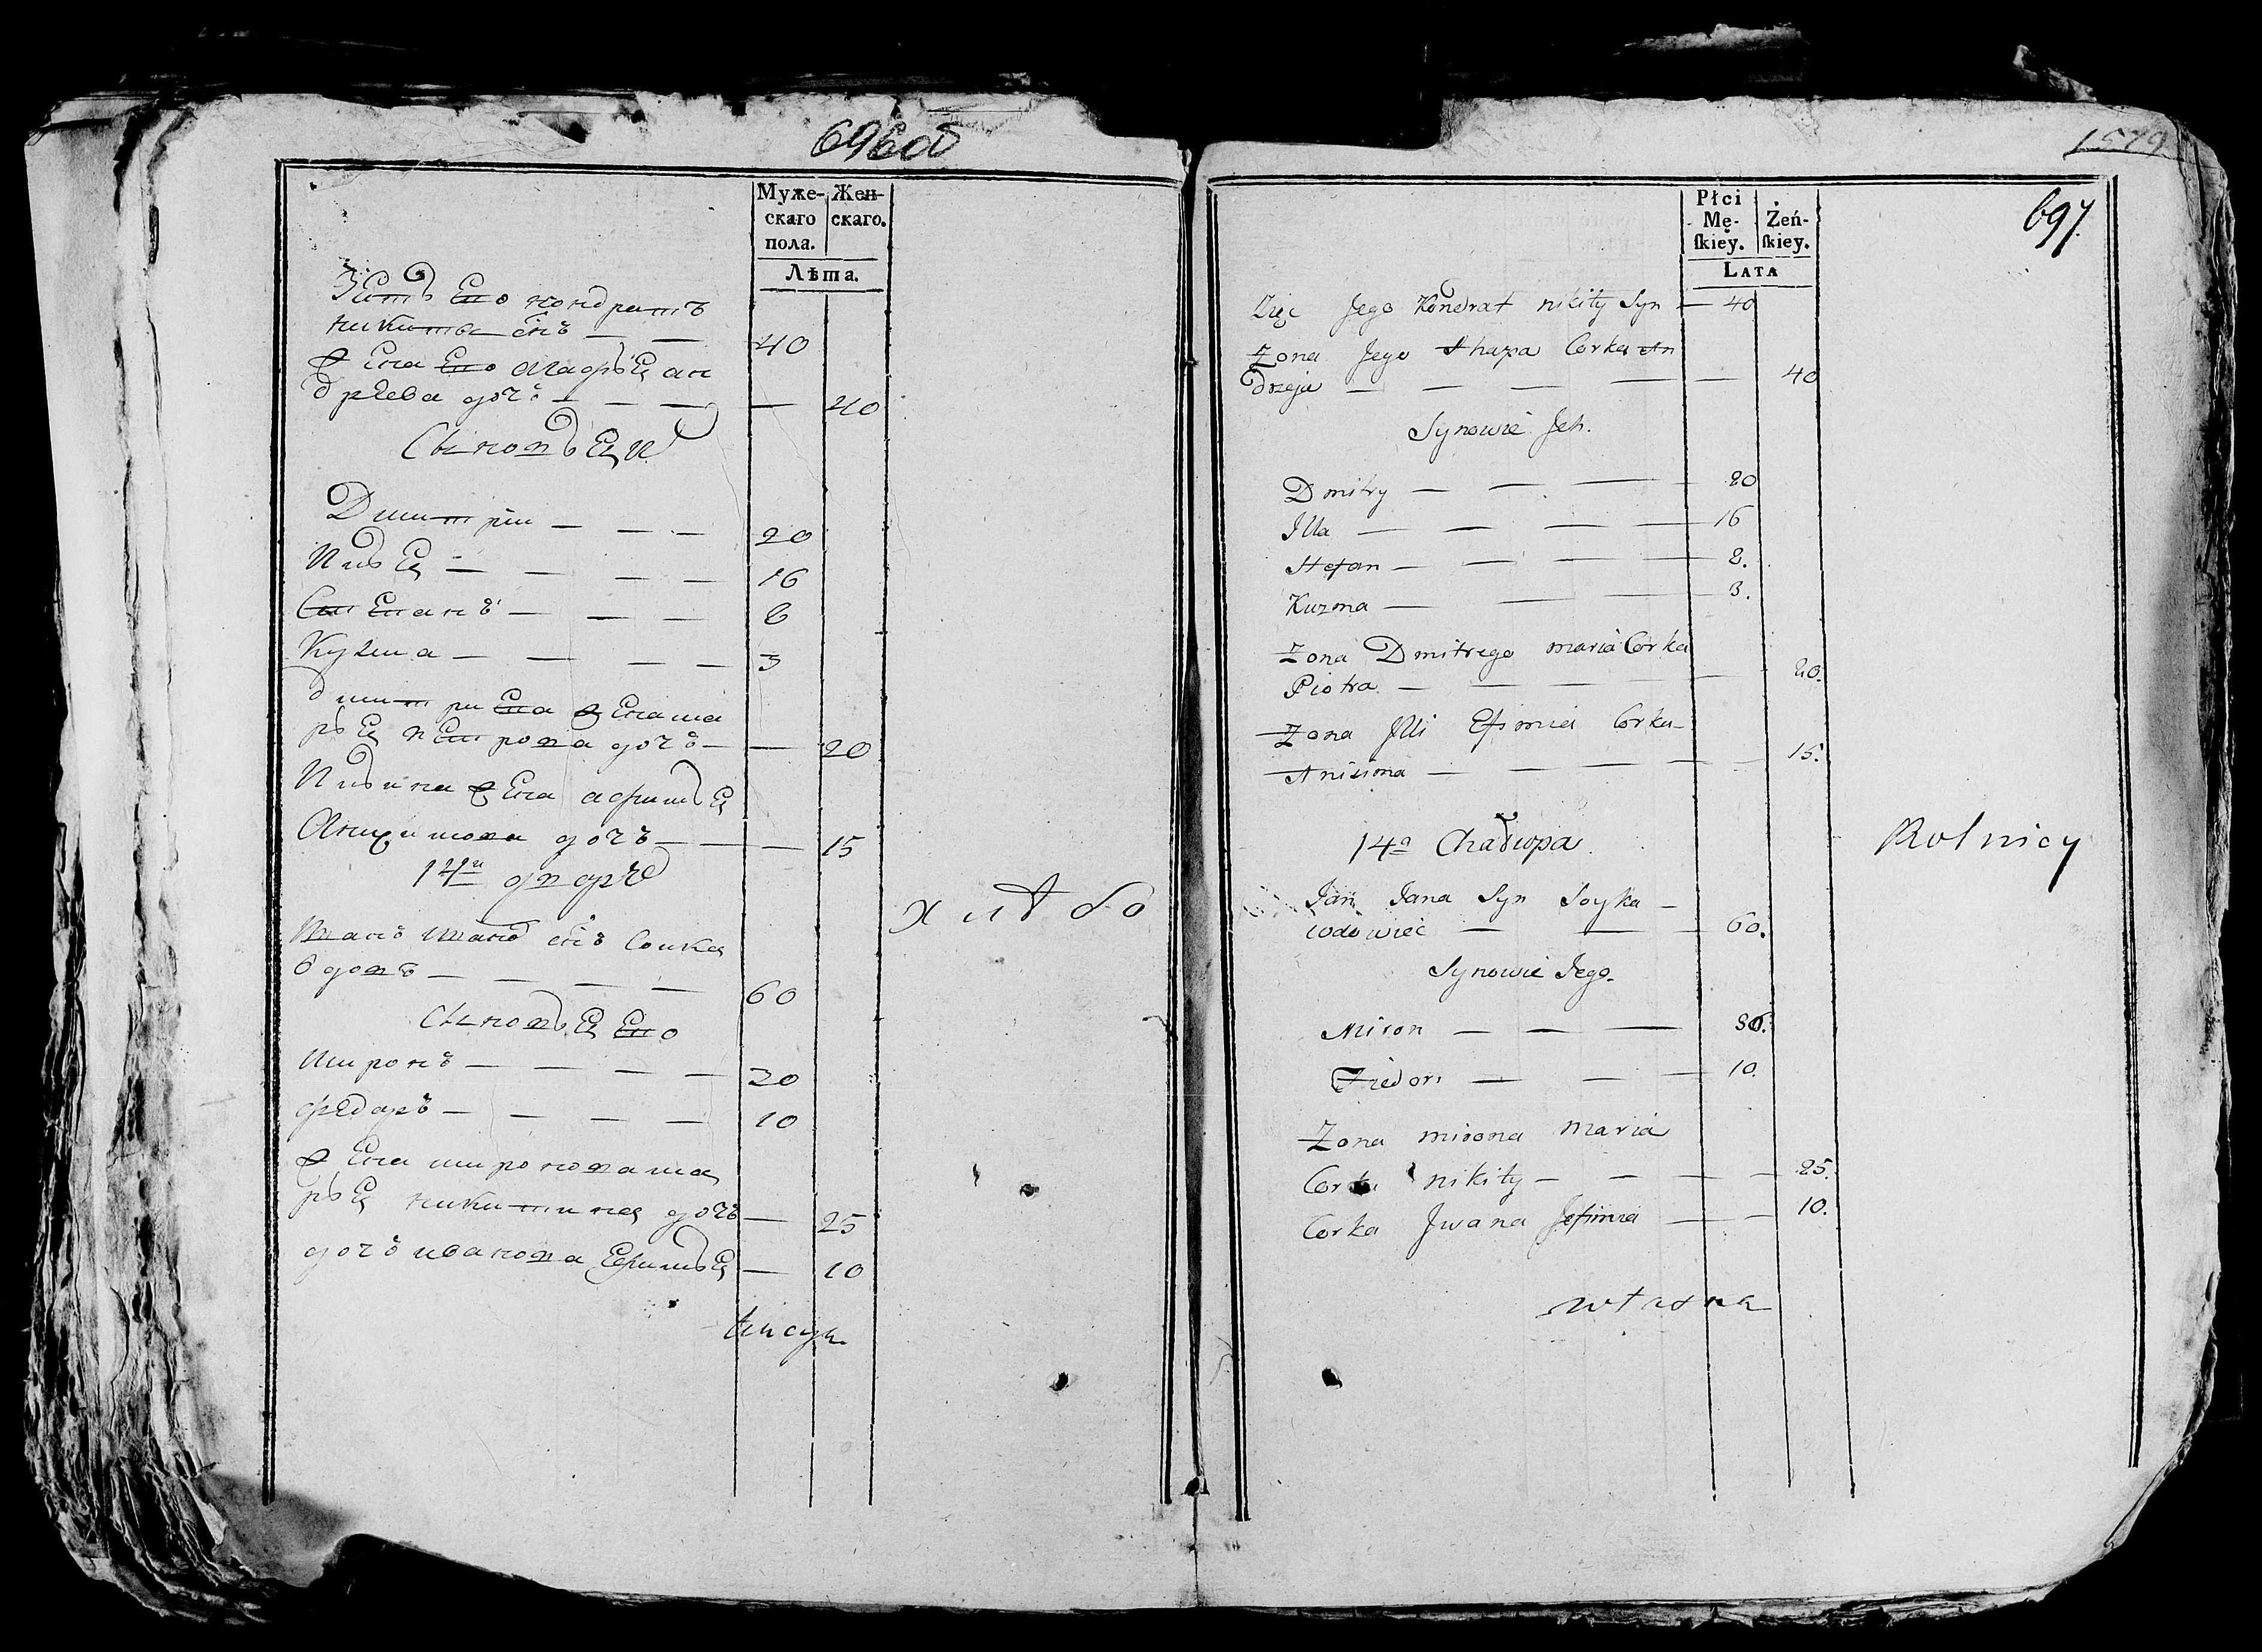 696об
Муже-
скаго
пола.
Жен-
скаго.
Лѣта.
Зять его кондратъ
никиты снъ — — 40
жена его агафья ан
дреева дочь — — — — 40
Сыновья ихъ
Дмитрiи — — — 20
Илья — — — — 16
Степанъ — — — 8
Кузма — — — — 3
дмитриева жена ма
рья петрова дочь — — 20
Ильина жена афимья
Анисимова дочь — — — 15
14й дворъ
Иванъ Ивановъ снъ Соика
вдовъ — — — — 60
Сыновья его
Миронъ — — — — 30
федоръ — — — — 10
жена миронова ма
рья никитина дочь — 25
дочь иванова Ефимья — 10
1579
697
Płci
Mę-
skiey.
Żeń-
skiey.
LATA
Zięć Jego Kondrat nikity Syn — 40
Zona Jego Ahapa Corka An
drzeja — — — — — 40
Synowie Jch.
Dmitry — — — 20
Jlla — — — — 16
Stefan — — — — 8.
Kuzma — — — 3.
Zona Dmitrego maria Corka
Piotra — — — — — 20.
Zona Jlli Efimia Corka —
Anisima — — — — — 15.
14a Chałupa.
Rolnicy
Jan Jana Syn Soyka —
wdowiec — — — 60.
Synowie Jego.
Miron — — — 30.
Fiedor — — — 10.
Zona mirona maria
Corka nikity — — — — 25.
Corka Jwana Jefimia — — 10.
własna